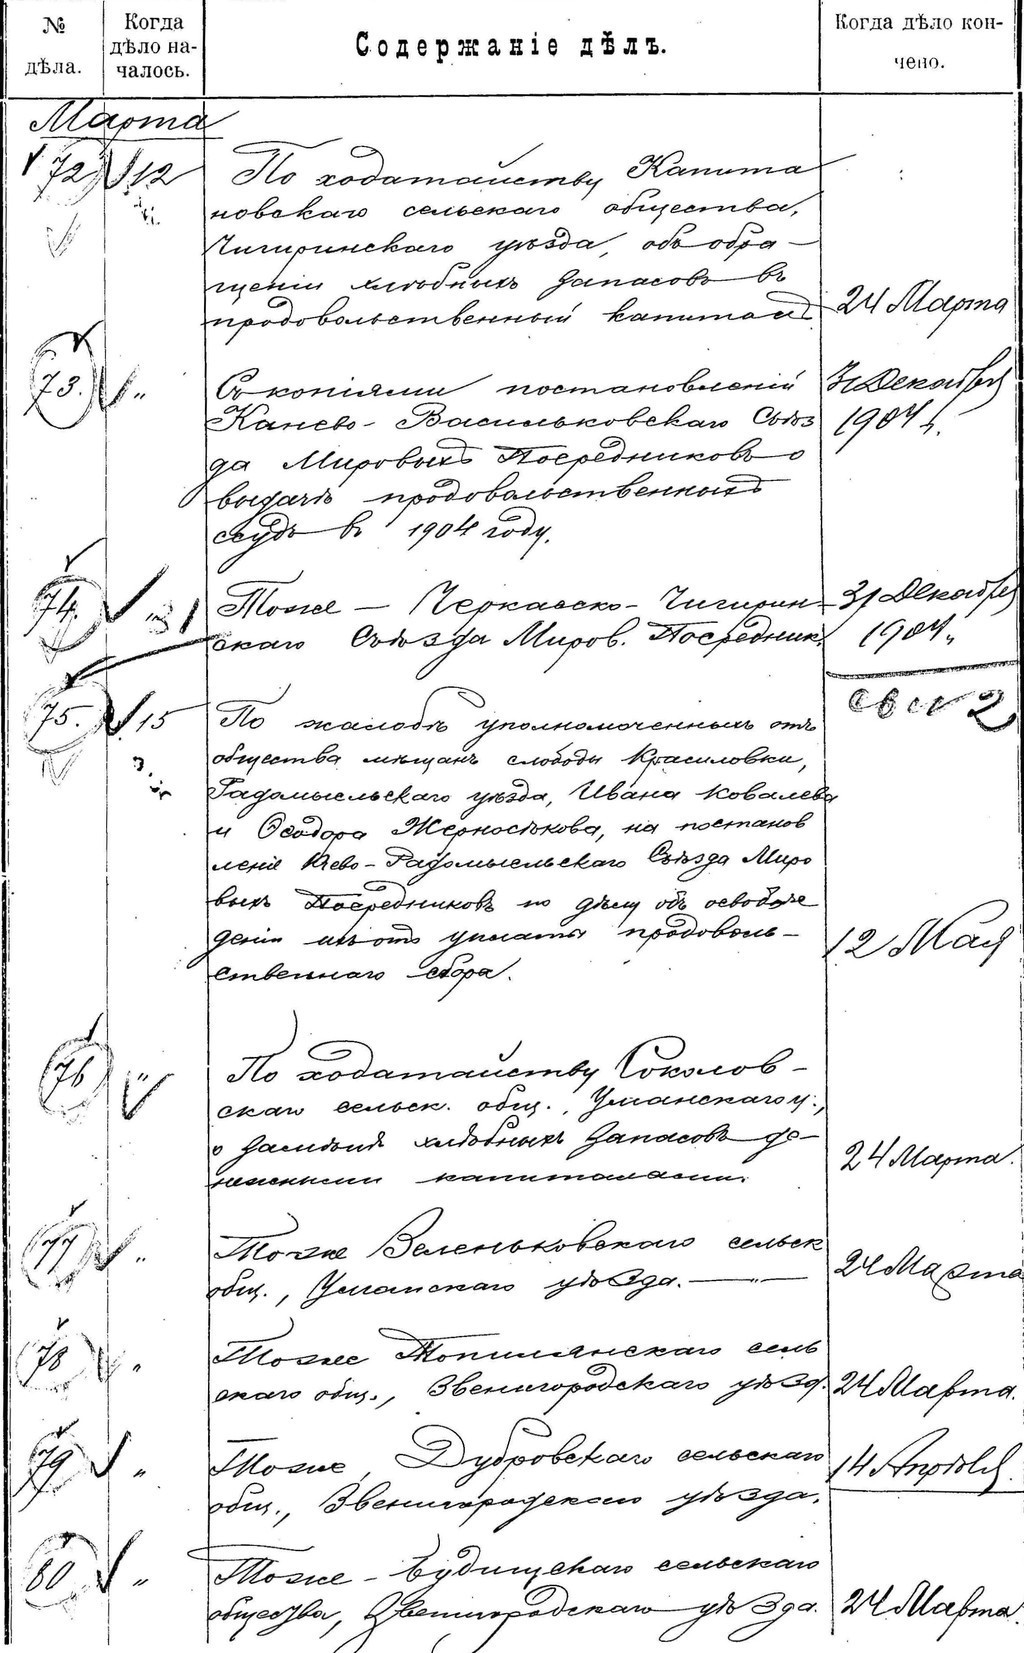 № дѣла.
Когда дѣло началось.
Содержаніе дѣлъ.
Когда дѣло кончено.
Марта
72 12 По ходатайству Капита
новскаго сельскаго общества,
Чигиринскаго уѣзда, объ обра-
щеніи хлѣбныхъ запасовъ въ
продовольственный капиталъ. 24 Марта
73. " Съ копіями постановленій 31 Декабря
Канево-Васильковскаго Съѣз 1904 г.
да Мировыхъ Посредниковъ о
выдачѣ продовольственныхъ
ссудъ въ 1904 году.
74. Тоже - Черкасско-Чигирин- 31 Декабря
скаго Съѣзда Миров. Посредник. 1904 г.
75. 15 По жалобѣ уполномоченныхъ отъ
общества мѣщанъ слободы Красиловки,
Радомысльскаго уѣзда, Ивана Ковалева
и Ѳеодора Жерносѣкова, на постанов
леніе Кіево-Радомысльскаго Съѣзда Миро
выхъ Посредниковъ по дѣлу объ освобож
деніи ихъ отъ уплаты продоволь-
ственнаго сбора. 12 Мая
76 " По ходатайству Соколов-
скаго сельск. общ., Уманскаго у.,
о замѣнѣ хлѣбныхъ запасовъ де-
нежными капиталами. 24 Марта.
77 " Тоже Зеленьковскаго сельск
общ., Уманскаго уѣзда. — " — 24 Марта
78 " Тоже Топильянскаго сель
скаго общ., Звенигородскаго уѣзд. 24 Марта.
79 " Тоже, Дубровскаго сельскаго 14 Апрѣля.
общ., Звенигородскаго уѣзда.
80 " Тоже - Будищскаго сельскаго
общества, Звенигородскаго уѣзда. 24 Марта.